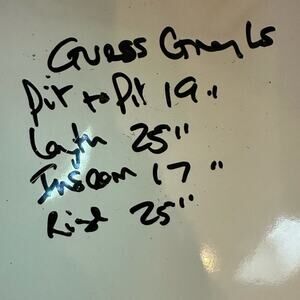 Guess Grey Ls
Pit to Pit 19"
Length 25"
Inseam 17"
Rise 25"